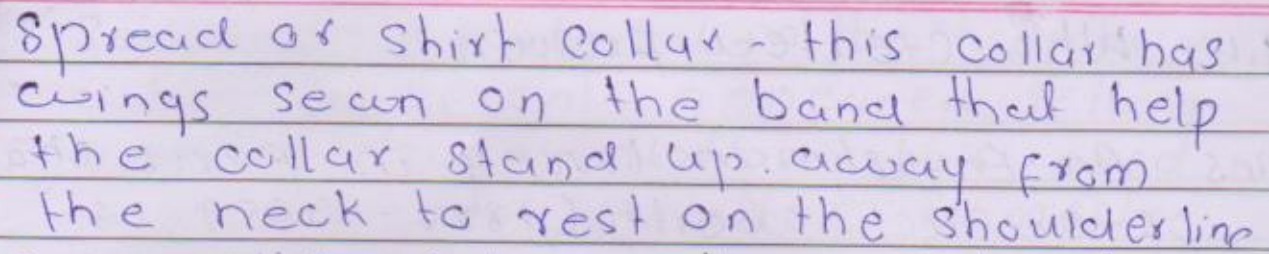 Spread or shirt collar - this collar has
wings sewn on the band that help
the collar stand up. away from
the neck to rest on the shoulder line